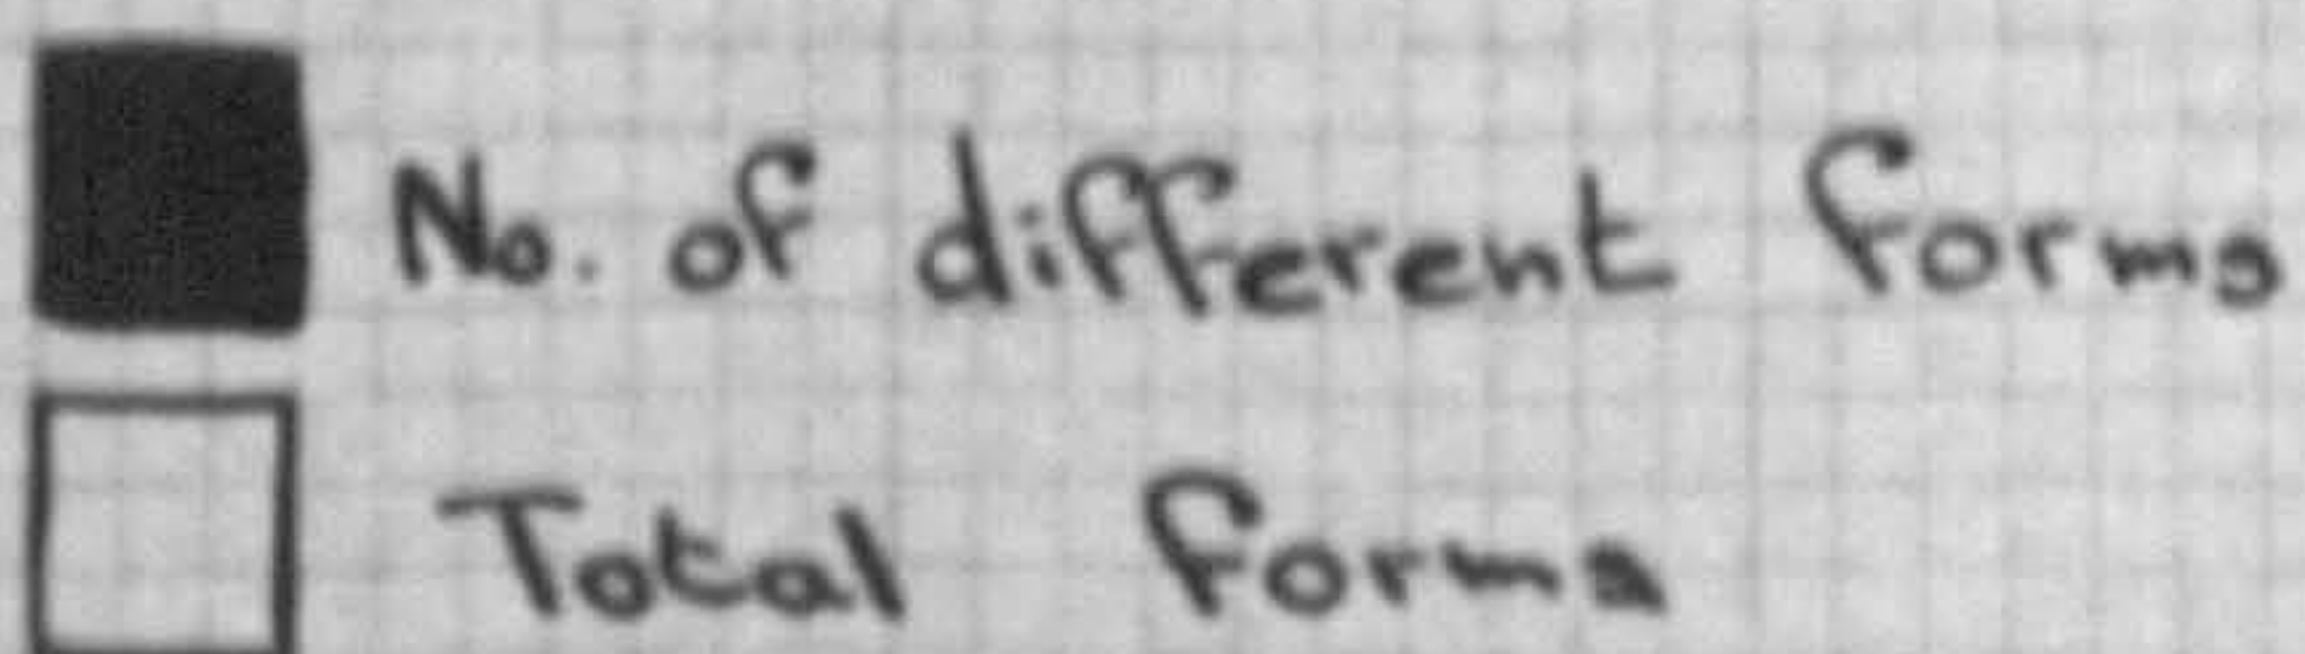 No. of different forms
Total forms